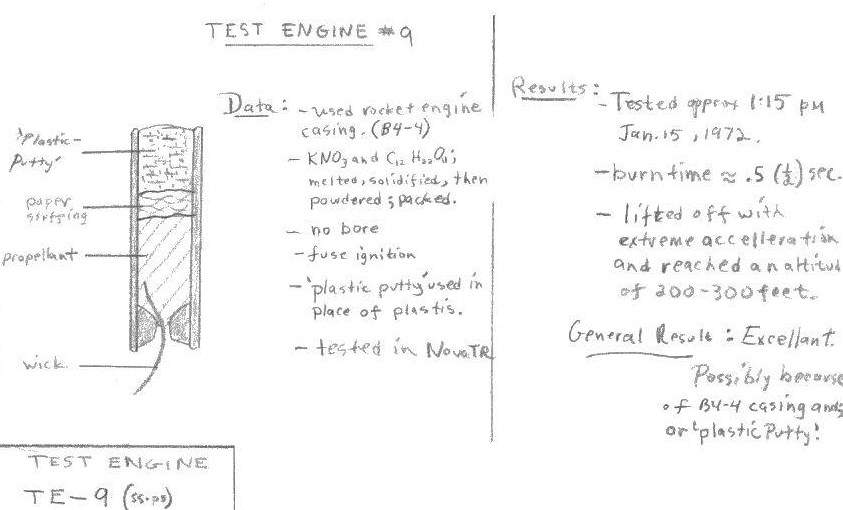 TEST ENGINE #9
'Plastic-
Putty'
paper
stuffing
propellant
wick
Data: - used rocket engine
casing. (B4-4)
- KNO3 and C12 H22O11;
melted, solidified, then
powdered & packed.
- no bore
- fuse ignition
- 'plastic putty' used in
place of plastis.
- tested in Nova TR
Results: - Tested approx 1:15 pm
Jan. 15, 1972.
- burn time ≈ .5 (½) sec.
- lifted off with
extreme accelleration
and reached an altitud
of 200-300 feet.
General Result: Excellant.
Possibly because
of B4-4 casing and
or 'plastic Putty'.
TEST ENGINE
TE-9 (ss-ps)